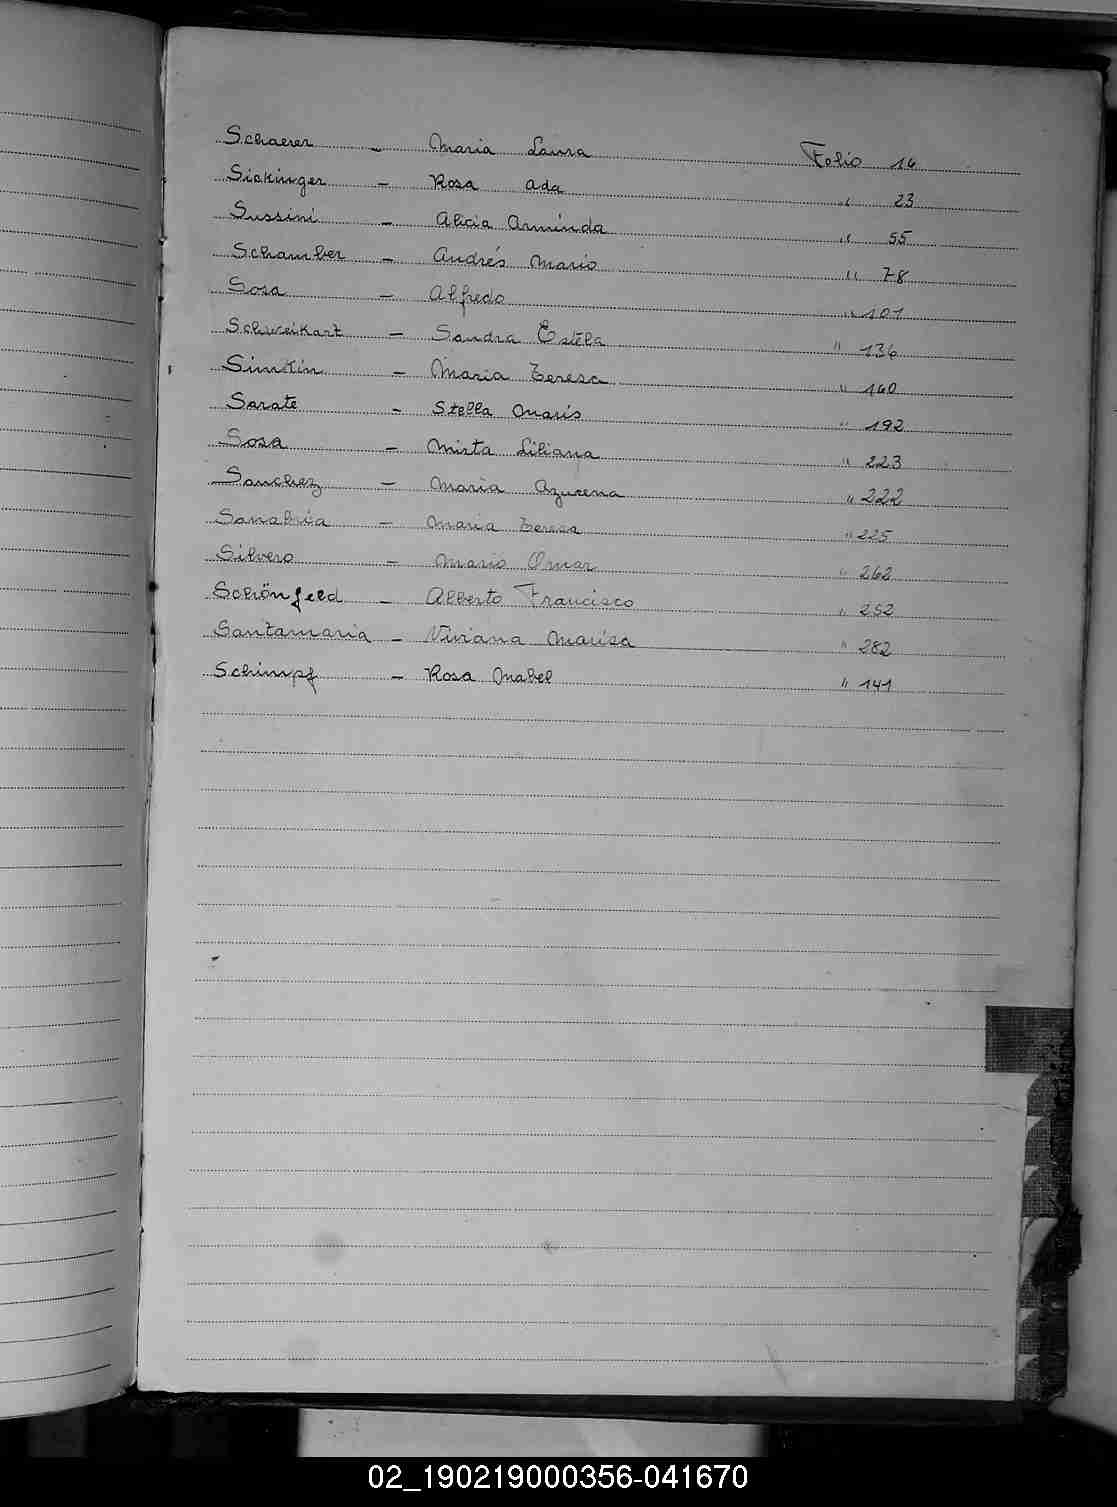 Schaerer - Maria Laura Folio 14
Sickinger - Rosa Ada " 23
Sussini - Alicia Arminda " 55
Schamber - Andrés Mario " 78
Sosa - Alfredo " 101
Schweikart - Sandra Estela " 136
Simkin - Maria Teresa " 160
Sarate - Stella Maris " 192
Sosa - Mirta Liliana " 223
Sanchez - Maria Azucena " 222
Sanabria - Maria Teresa " 225
Silvero - Mario Omar " 262
Schönfeld - Alberto Francisco " 252
Santamaria - Viviana Marisa " 282
Schimpf - Rosa Mabel " 141
02_190219000356-041670